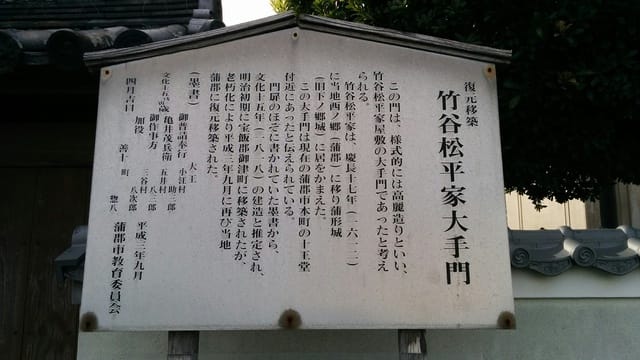 復元移築
竹谷松平家大手門
この門は、様式的には高麗造りといい、
竹谷松平家屋敷の大手門であったと考え
られる。
竹谷松平家は、慶長十七年(一六一二)
に当地西ノ郷(蒲郡)に移り蒲形城
(旧下ノ郷城)に居をかまえた。
この大手門は現在の蒲郡市本町の十王堂
付近にあったと伝えられている。
門扉のほぞに書かれていた墨書から、
文化十五年(一八一八)の建造と推定され、
明治初期に宝飯郡御津町に移築されたが、
老朽化により平成三年九月に再び当地
蒲郡に復元移築された。
(墨書)
大工
御普請奉行 小江村 助三郎
文化十五 歳 亀井茂兵衛 五井村
御作事方 三谷村 八三郎
四月吉日 加役 八次郎
善十町 惣八
平成三年九月
蒲郡市教育委員会